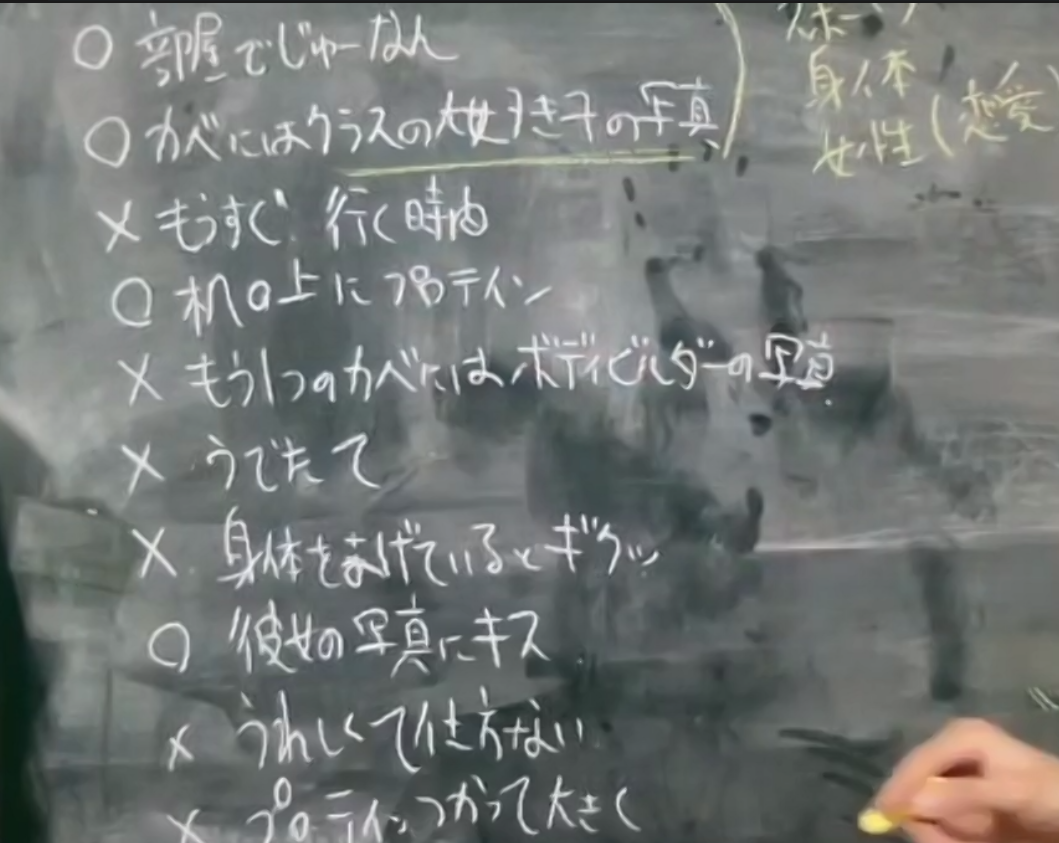 ○ 部屋でじゅーなん
○ カベにはクラスの大好き子の写真
× もうすぐ 行く時間
○ 机の上にプロテイン
× もう1つのカベにはボディビルダーの写真
× うでたて
× 身体をまげているとギクッ
○ 彼女の写真にキス
× うれしくて仕方ない
× プロテインつかって大きく
スポーツ
身体
女性(恋愛